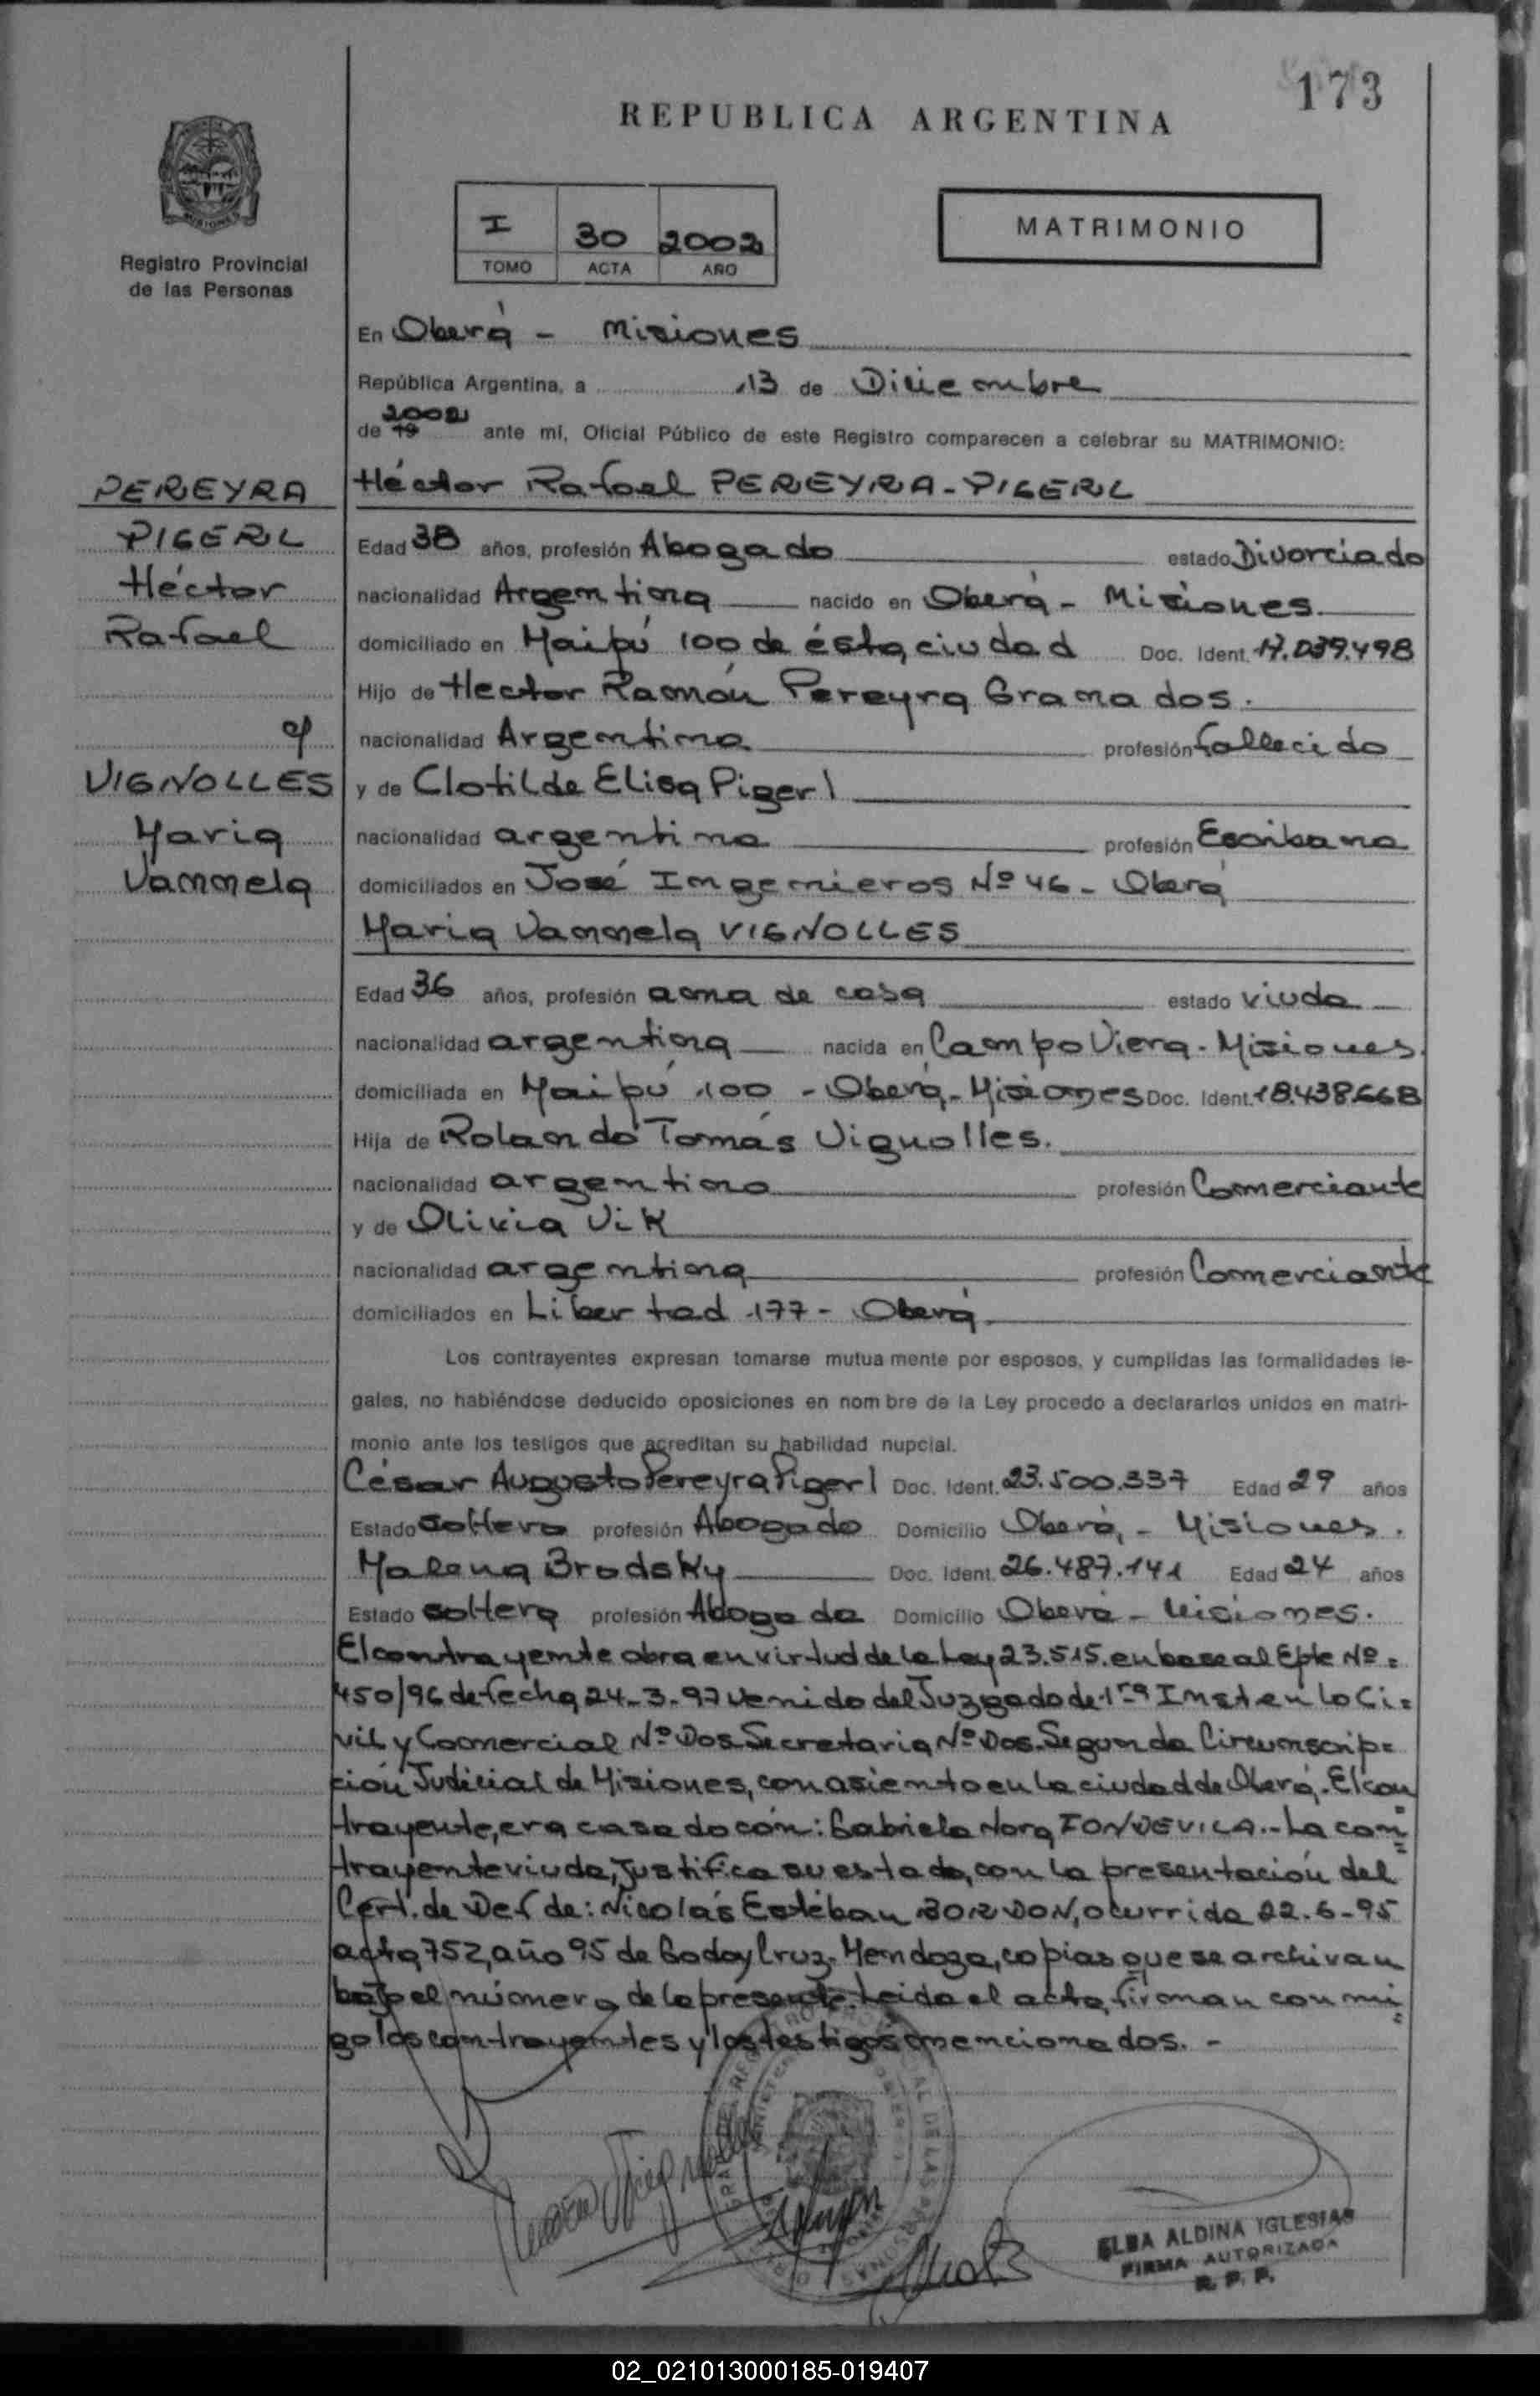 173
REPUBLICA ARGENTINA
I 30 2002
TOMO ACTA AÑO
MATRIMONIO
Registro Provincial
de las Personas
En Oberá - Misiones
República Argentina, a 13 de Diciembre
de 19 2002 ante mi, Oficial Público de este Registro comparecen a celebrar su MATRIMONIO:
PEREYRA
PIGERL
Héctor
Rafael
c/
VIGNOLLES
Maria
Vanmela
Héctor Rafael PEREYRA-PIGERL
Edad 38 años, profesión Abogado estado Divorciado
nacionalidad Argentina nacido en Oberá - Misiones
domiciliado en Maipú 100 de ésta ciudad Doc. Ident. 17.039.498
Hijo de Hector Ramón Pereyra Gramados.
nacionalidad Argentino profesión fallecido
y de Clotilde Elisa Pigerl
nacionalidad argentina profesión Escribana
domiciliados en José Ingenieros Nº 46 - Oberá
Maria Vanmela VIGNOLLES
Edad 36 años, profesión ama de casa estado viuda
nacionalidad argentina nacida en Campo Viera - Misiones.
domiciliada en Maipú 100 - Oberá - Misiones Doc. Ident. 18.438.668
Hija de Rolando Tomás Vignolles.
nacionalidad argentino profesión Comerciante
y de Olivia Vik
nacionalidad argentina profesión Comerciante
domiciliados en Libertad 177 - Oberá
Los contrayentes expresan tomarse mutua mente por esposos, y cumplidas las formalidades le-
gales, no habiéndose deducido oposiciones en nom bre de la Ley procedo a declararlos unidos en matri-
monio ante los testigos que acreditan su habilidad nupcial.
César Augusto Pereyra Pigerl Doc. Ident. 23.500.337 Edad 29 años
Estado soltero profesión Abogado Domicilio Oberá, - Misiones.
Malena Brodsky Doc. Ident. 26.487.141 Edad 24 años
Estado soltera profesión Abogada Domicilio Oberá - Misiones.
El contrayente obra en virtud de la Ley 23.515. en base al Epte Nº =
450/96 de fecha 24-3-97 venido del Juzgado de 1ra Inst en lo Ci=
vil y Comercial Nº Dos Secretaria Nº Dos. Segunda Circunscrip=
ción Judicial de Misiones, con asiento en la ciudad de Oberá. El con
trayente, era casado con: Gabriela Nora FONDEVILA.- La con=
trayente viuda, Justifica su estado, con la presentación del
Cert. de Def de: Nicolás Estéban BORDON, ocurrida 22.6-95
acta 752, año 95 de Godoy Cruz. Mendoza, copias que se archivan
bajo el número de la presente. Leida el acta, firman con mi=
go los contrayentes y los testigos mencionados. -
ELBA ALDINA IGLESIAS
FIRMA AUTORIZADA
R. P. P.
02_021013000185-019407